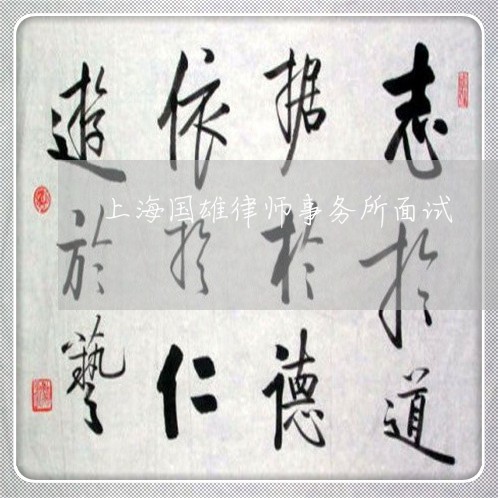 志於道
据於德
依於仁
遊於藝
上海国雄律师事务所面试